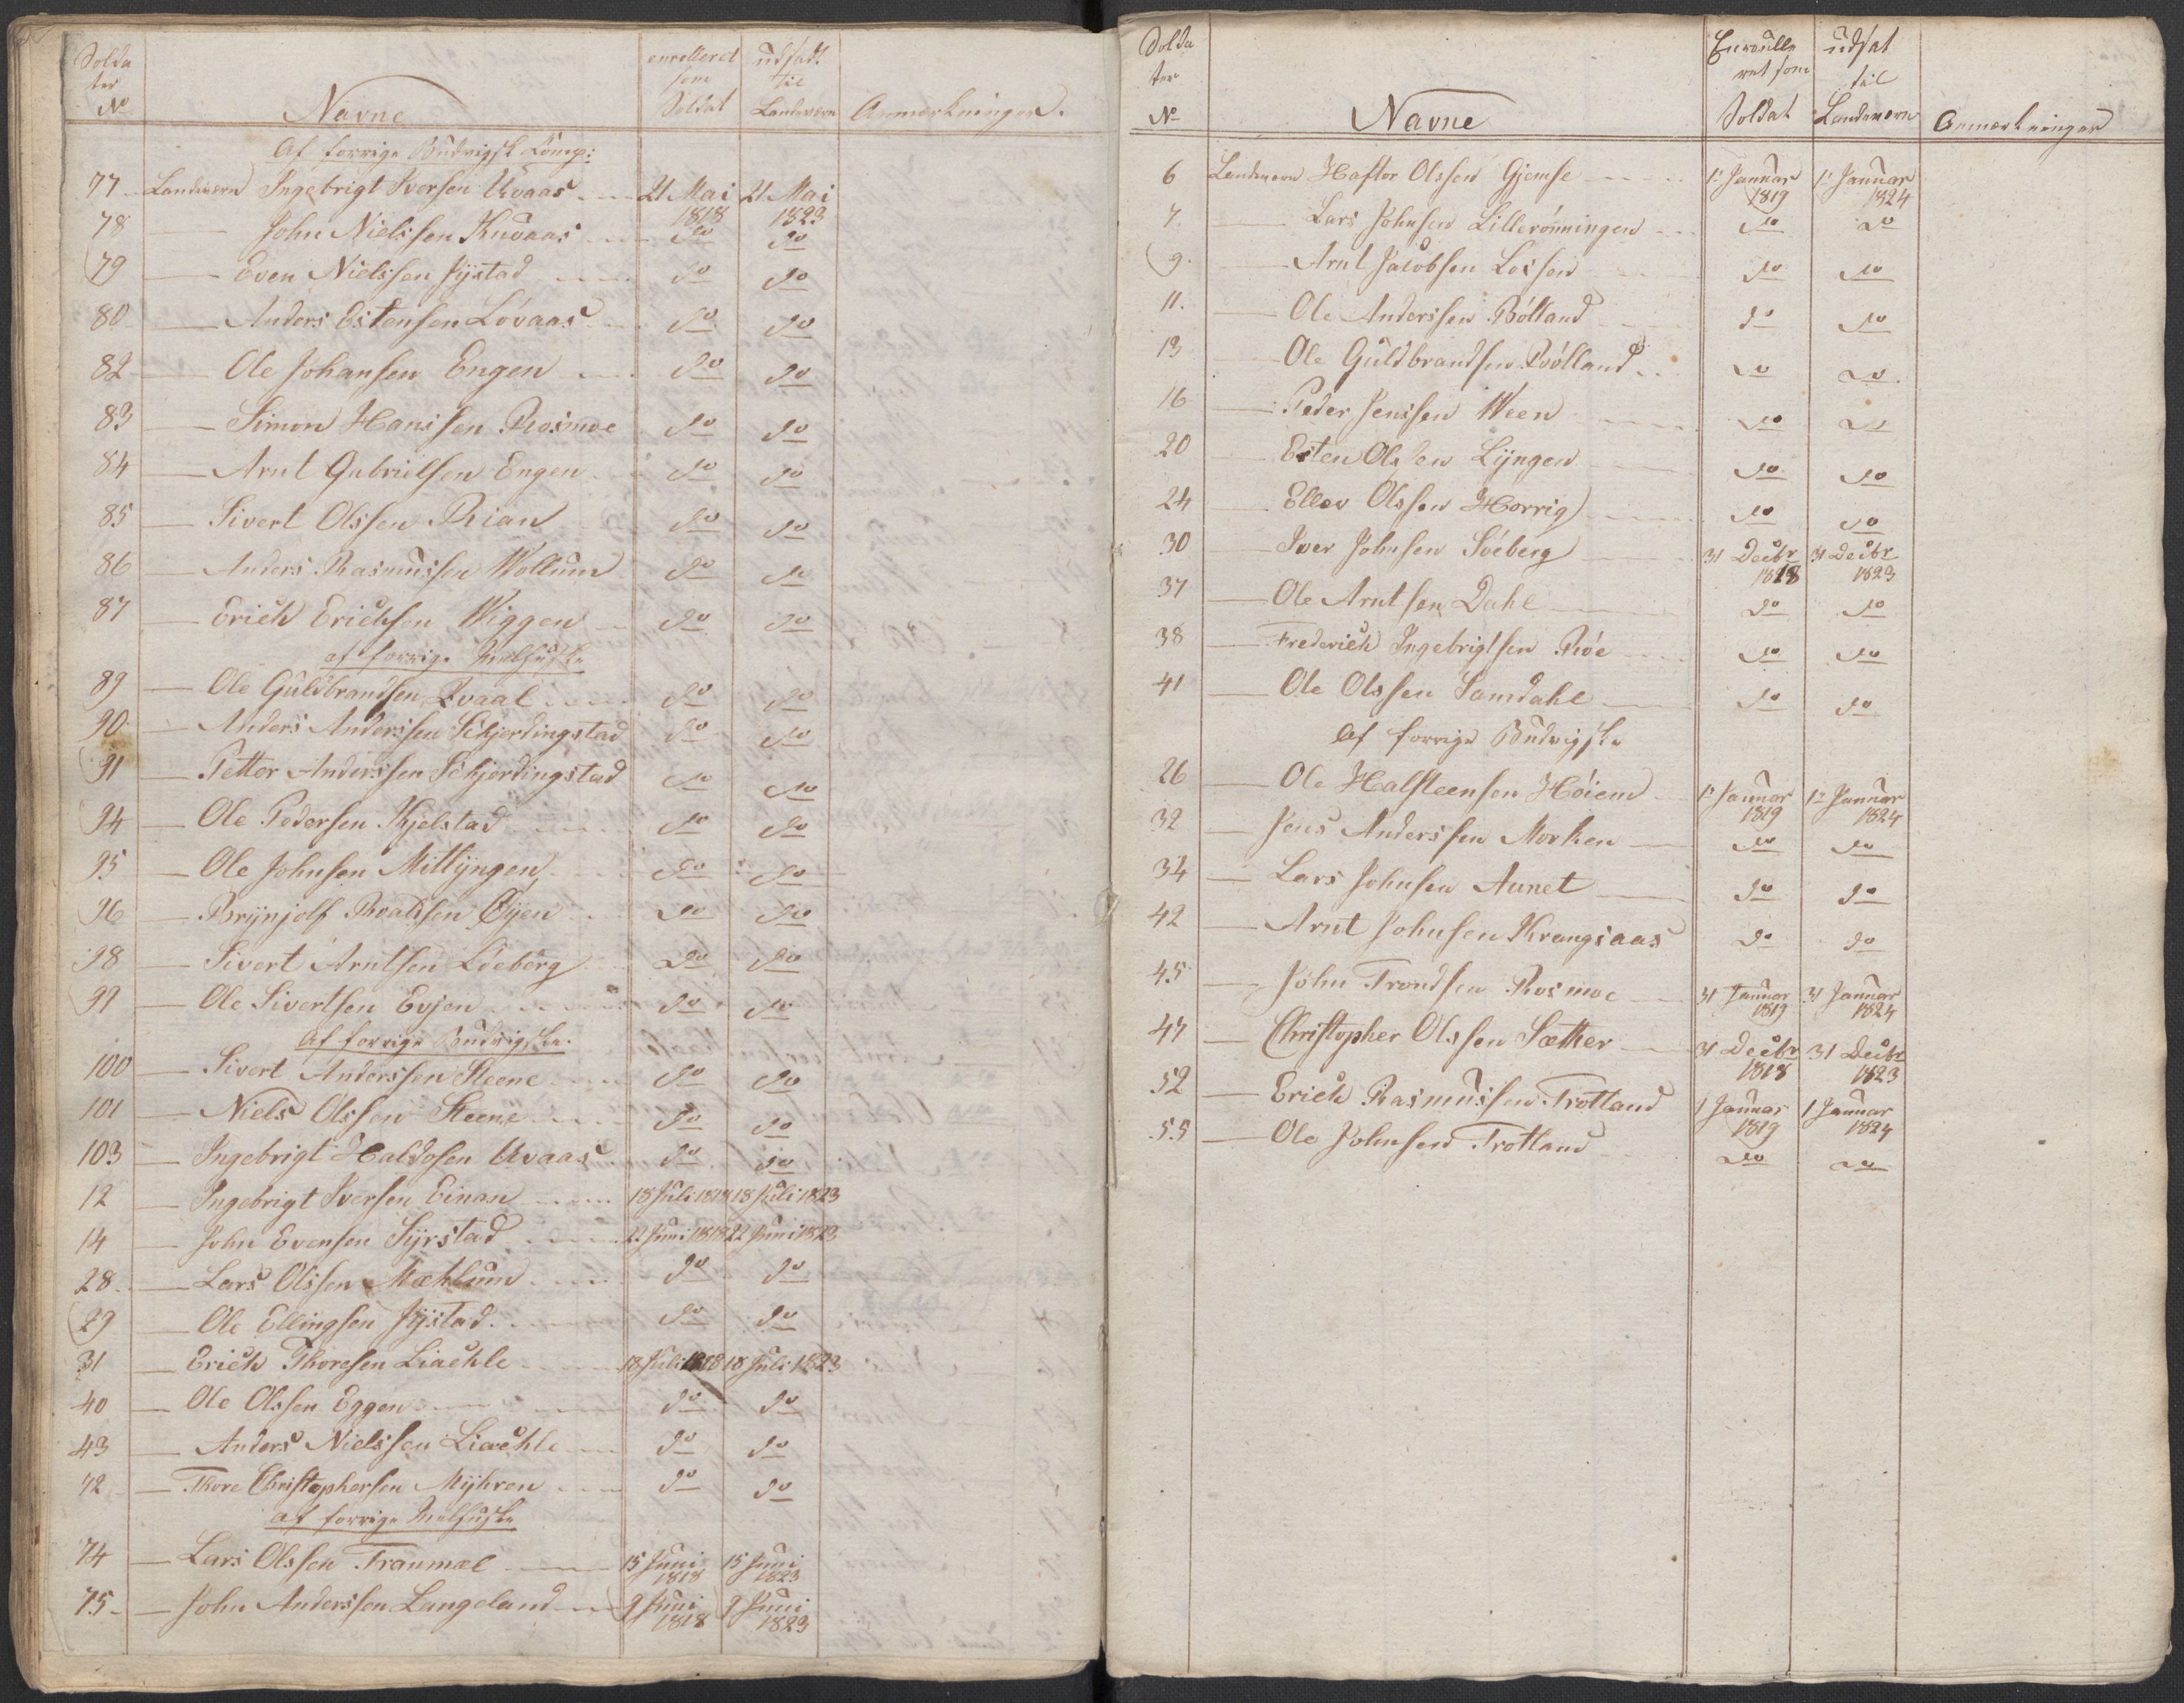 Solda
ter
No
Navne
enrolleret
som
Soldat
udsadt
til
Landeværn
Anmærkninger.
Af forrige Budvigsk Comp:
77 Landeværn Ingebrigt Iversen Uvaas 21 Mai 1818 21 Mai 1823
78 — John Nielssen Kuvaas do do
79 — Even Nielssen Jystad do do
80 — Anders Estensen Lóvaas do do
82 — Ole Johansen Engen do do
83 — Simon Hanssen Rosmoe do do
84 — Arnt Gabrielsen Engen do do
85 — Sivert Olssen Rian do do
86 — Anders Rasmussen Wollum do do
87 — Erich Erichsen Wiggen do do
af forrige Melhuske
89 — Ole Guldbrandsen Kvaal do do
90 — Anders Anderssen Schjerdingstad do do
91 — Petter Anderssen Schjerdingstad do do
94 — Ole Pedersen Kjelstad do do
95 — Ole Johnsen Mitlyngen do do
96 — Brynjolf Roaldsen Øyen do do
98 — Sivert Arntsen Lóeberg do do
99 — Ole Sivertsen Evjen do do
Af forrige Budvigske.
100 — Sivert Anderssen Steene do do
101 — Niels Olssen Steene do do
103 — Ingebrigt Haldosen Uvaas do do
12 — Ingebrigt Iversen Einan 18 Juli 1818 18 Juli 1823
14 — John Evensen Syrstad 22 Juni 1818 22 Juni 1823
28 — Lars Olssen Mæhlum do do
29 — Ole Ellingsen Jystad do do
31 — Erich Thoresen Liaehle 18 Juli 1818 18 Juli 1823
40 — Ole Olssen Eggen do do
43 — Anders Nielssen Liaehle do do
72 — Thore Christophersen Myhren do do
af forrige Melhuske
74 — Lars Olssen Tranmæl 15 Juni 1818 15 Juni 1823
75 — John Anderssen Langeland 9 Juni 1818 9 Juni 1823
Solda
ter
No
Navne
Enroulle
ret som
Soldat
udsat
til
Landeværn
Anmærkninger
6 Landeværn Haftor Olssen Gjemse 1r Januar 1819 1r Januar 1824
7. — Lars Johnsen Lillerónningen do do
9. — Arnt Jacobsen Losen do do
11. — Ole Anderssen Bólland do do
13 — Ole Guldbrandsen Kvólland do do
16 — Peder Jenssen Ween do do
20 — Esten Olssen Lyngen do do
24 — Ellev Olssen Horrig do do
30 — Iver Johnsen Sóeberg 31 Decbr 1818 31 Decbr 1823
37 — Ole Arntsen Dahl do do
38 — Frederich Ingebrigtsen Róe do do
41 — Ole Olssen Samdahl do do
Af forrige Budvigske
26 — Ole Halsteensen Hóiem 1r Januar 1819 1r Januar 1824
32 — Jens Anderssen Morken do do
34 — Lars Johnsen Aunet do do
42 — Arnt Johnsen Krangsaas do do
45 — John Trondsen Rosmoe 31 Januar 1819 31 Januar 1824
47 — Christopher Olssen Sæther 31 Decbr 1818 31 Decbr 1823
52 — Erich Rasmussen Trotland 1 Januar 1819 1 Januar 1824
55 — Ole Johnsen Trotland do do